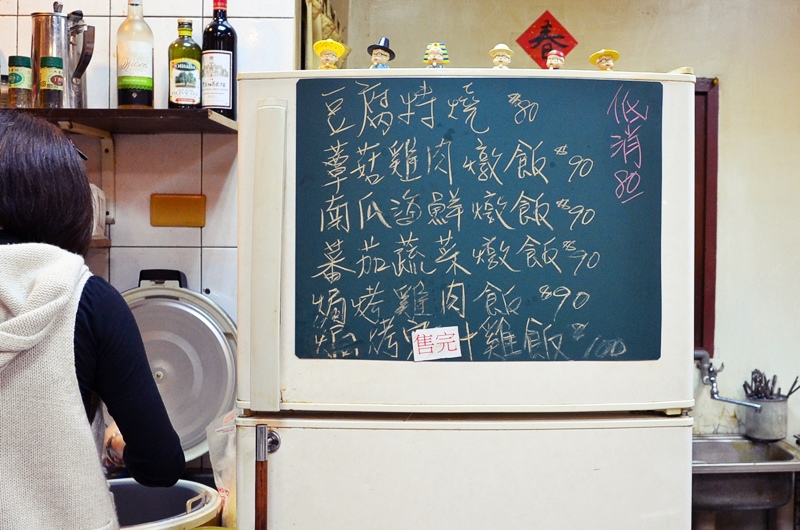 春
豆腐特燒 $80
蕈菇雞肉燉飯 $90
南瓜海鮮燉飯 $90
蕃茄蔬菜燉飯 $90
焗烤雞肉飯 $90
焗烤 汁雞飯 $100
售完
低消80